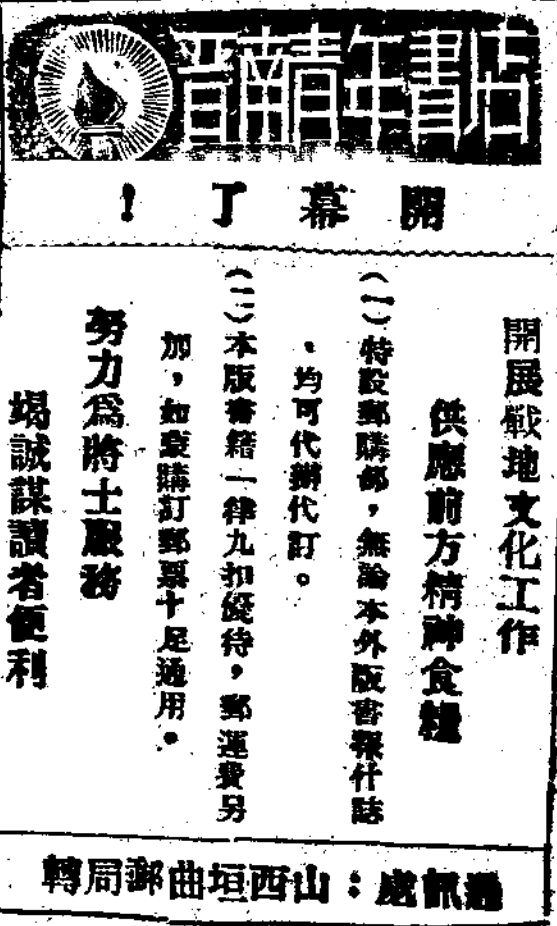 晋南青年書店
開幕了！
開展戰地文化工作
供應前方精神食糧
（一）特設郵購部，無論本外版書報什誌
，均可代辦代訂。
（二）本版書籍一律九扣優待，郵運費另
加，如蒙購訂郵票十足通用。
努力爲將士服務
竭誠謀讀者便利
通訊處：山西垣曲郵局轉